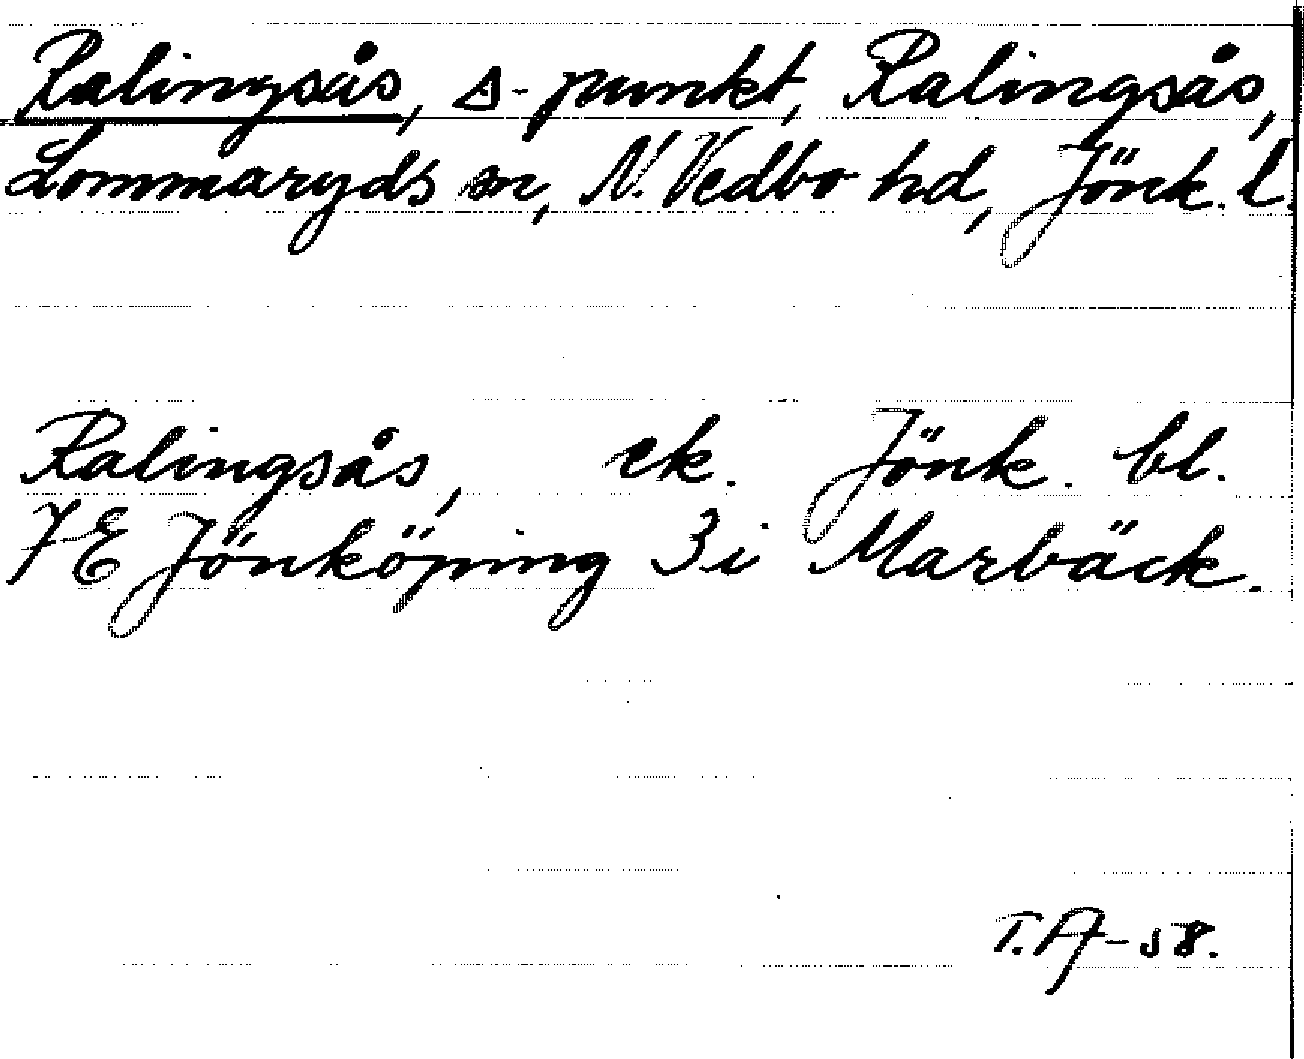 Ralingsås, Δ-punkt, Ralingsås,
Lommaryds sn, N. Vedbo hd, Jönk. l.
Ralingsås, ek. Jönk. bl.
7E Jönköping 3i Marbäck.
T. A-58.